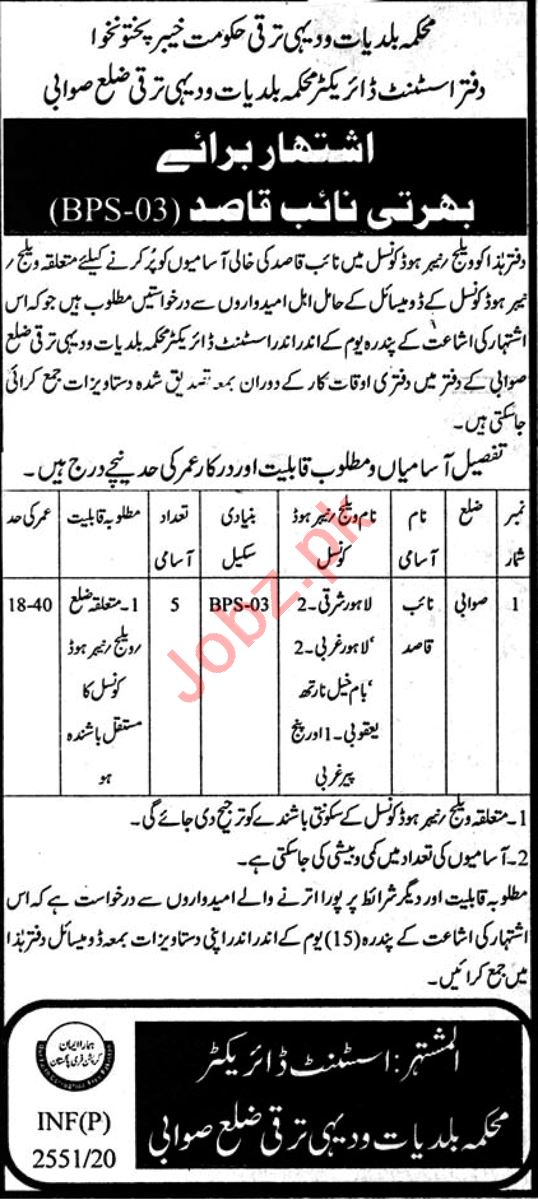 محکمہ بلدیات و دیہی ترقی حکومت خیبر پختونخوا
دفتر اسسٹنٹ ڈائریکٹر محکمہ بلدیات و دیہی ترقی ضلع صوابی
اشتہار برائے
بھرتی نائب قاصد (BPS-03)
دفتر ہذا کو ویلج/نیبر ہوڈ کونسل میں نائب قاصد کی خالی آسامیوں کو پُر کرنے کیلئے متعلقہ ویلج/
نیبر ہوڈ کونسل کے ڈومیسائل کے حامل اہل امیدواروں سے درخواستیں مطلوب ہیں جو کہ اس
اشتہار کی اشاعت کے پندرہ یوم کے اندر اندر اسسٹنٹ ڈائریکٹر محکمہ بلدیات و دیہی ترقی ضلع
صوابی کے دفتر میں دفتری اوقات کار کے دوران بمعہ تصدیق شدہ دستاویزات جمع کرائی
جاسکتی ہیں۔
تفصیل آسامیاں و مطلوب قابلیت اور درکار عمر کی حد نیچے درج ہیں۔
نمبر شمار | ضلع | نام آسامی | نام ویلج/نیبر ہوڈ کونسل | بنیادی سکیل | تعداد آسامی | مطلوبہ قابلیت | عمر کی حد
1 | صوابی | نائب قاصد | لاہور شرقی۔2، لاہور غربی۔2، بام خیل نارتھ، یعقوبی۔1 اور پنج پیر غربی | BPS-03 | 5 | 1۔ متعلقہ ضلع/ویلج/نیبر ہوڈ کونسل کا مستقل باشندہ ہو | 18-40
1۔ متعلقہ ویلج/نیبر ہوڈ کونسل کے سکونتی باشندے کو ترجیح دی جائے گی۔
2۔ آسامیوں کی تعداد میں کمی و بیشی کی جاسکتی ہے۔
مطلوبہ قابلیت اور دیگر شرائط پر پورا اترنے والے امیدواروں سے درخواست ہے کہ اس
اشتہار کی اشاعت کے پندرہ (15) یوم کے اندر اندر اپنی دستاویزات بمعہ ڈومیسائل دفتر ہذا
میں جمع کرائیں۔
المشتہر: اسسٹنٹ ڈائریکٹر
محکمہ بلدیات و دیہی ترقی ضلع صوابی
ہمارا ایمان
کرپشن فری پاکستان
INF(P)
2551/20
Jobz.pk